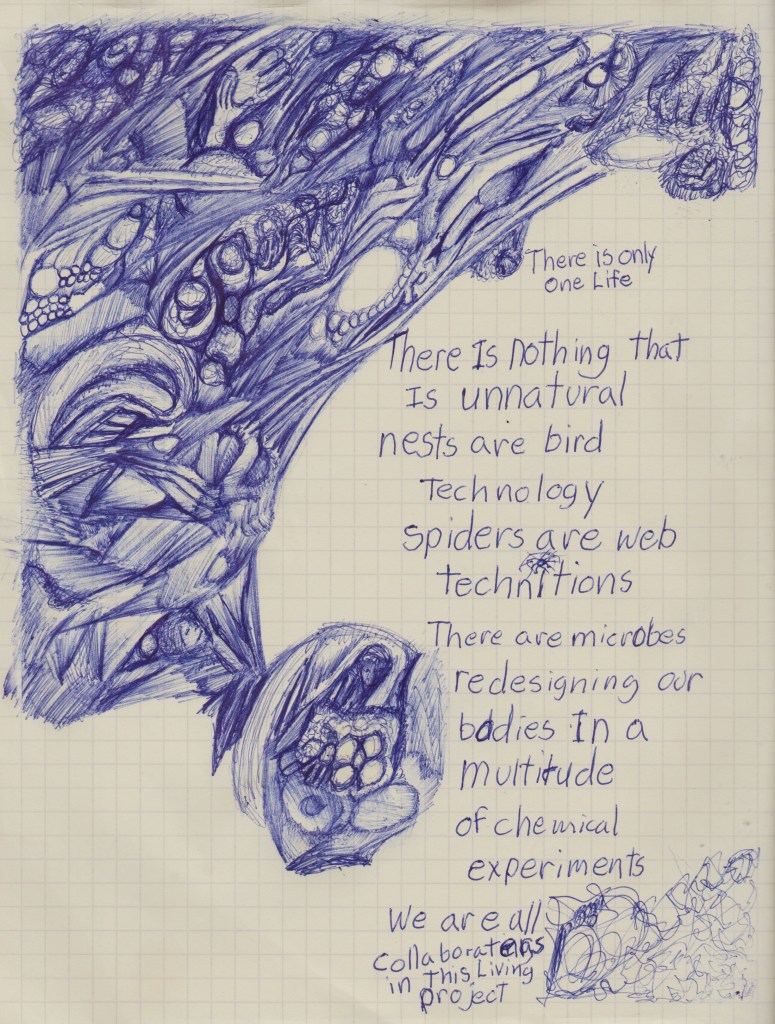 There is only
one Life
There Is nothing that
Is unnatural
nests are bird
Technology
Spiders are web
technitions
There are microbes
redesigning our
bodies In a
multitude
of chemical
experiments
We are all
collaborateors
in this Living
project